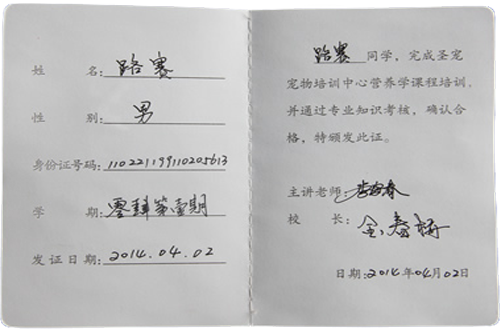 姓 名：路赛
性 别：男
身份证号码：110221199110205613
学 期：零肆第壹期
发证日期：2014.04.02
路赛 同学，完成圣宠
宠物培训中心营养学课程培训，
并通过专业知识考核，确认合
格，特颁发此证。
主讲老师：李海春
校 长：金春梅
日期：2014年04月02日